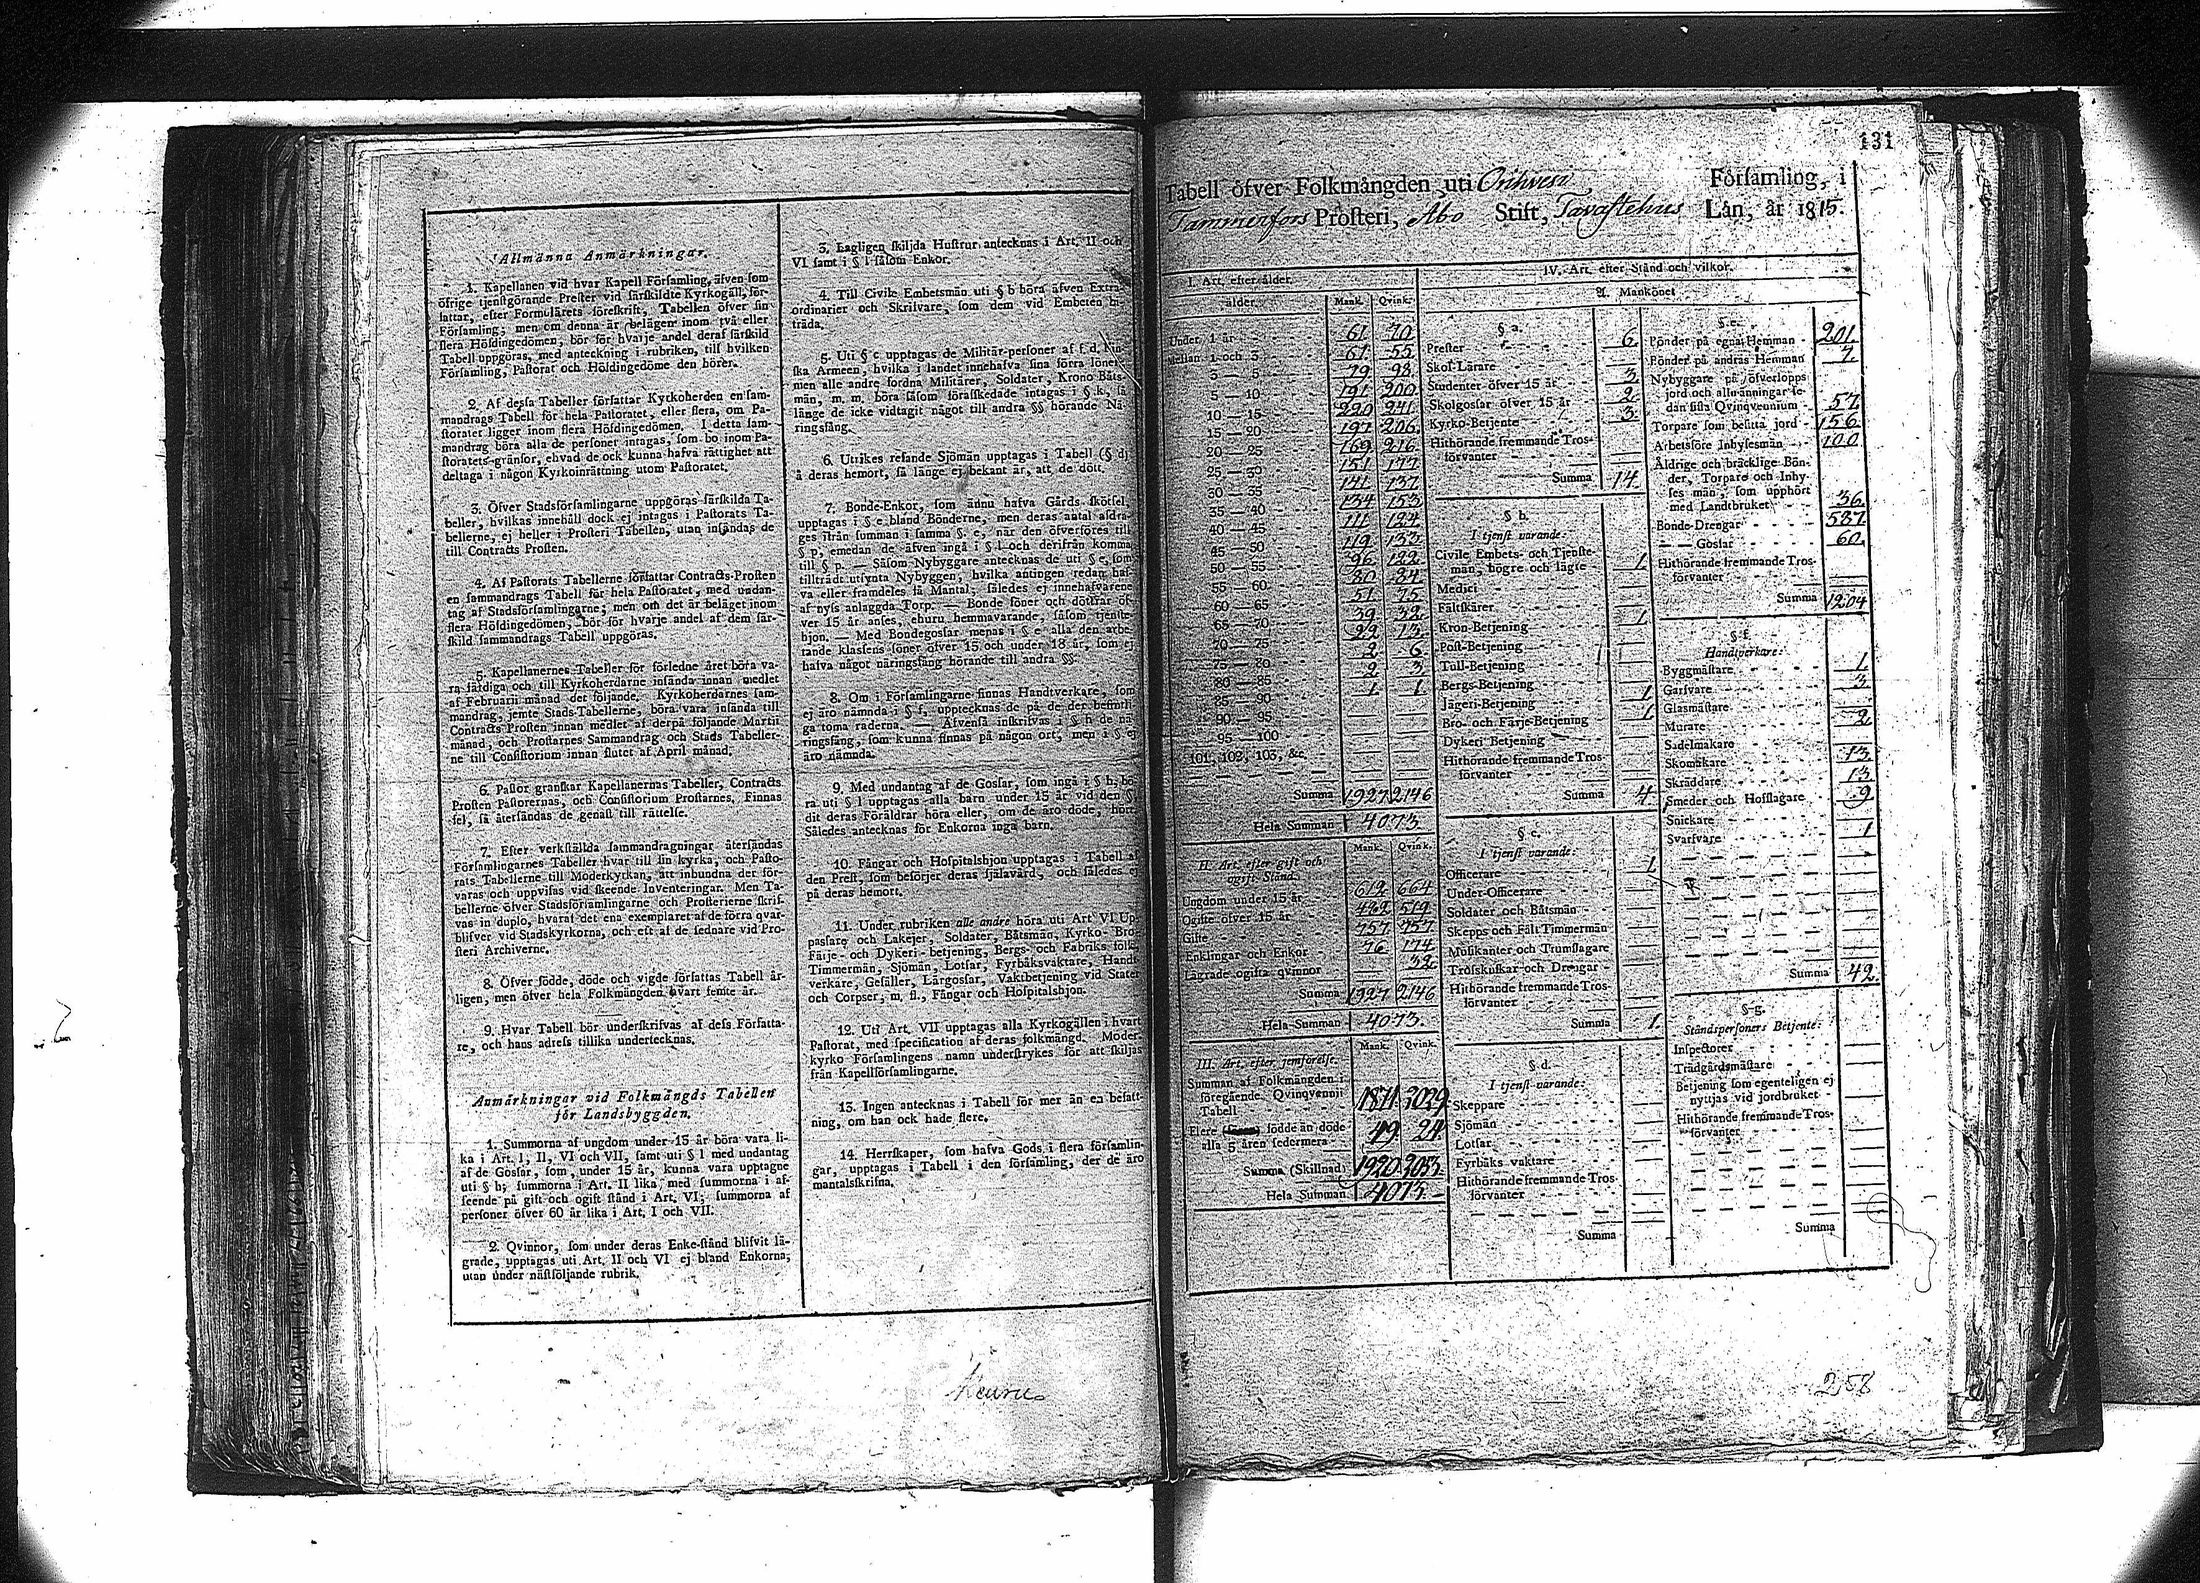 Allmänna Anmärkningar.
1. Kapellanen vid hvar Kapell Församling, äfven som
öfrige tjenstgörande Prester vid särskildte Kyrkogäll, för-
fattar, efter Formulärets föreskrift, Tabellen öfver sin
Församling; men om denna är belägen inom två eller
flera Höfdingedömen, bör för hvarje andel deraf särskild
Tabell uppgöras, med anteckning i rubriken, till hvilken
Församling, Pastorat och Höfdingedöme den hörer.
2. Af dessa Tabeller författar Kyrkoherden en sam-
mandrags Tabell för hela Pastoratet, eller flera, om Pa-
storatet ligger inom flera Höfdingedömen. I detta sam-
mandrag böra alla de personer intagas, som bo inom Pa-
storatets gränsor, ehvad de ock kunna hafva rättighet att
deltaga i någon Kyrkoinrättning utom Pastoratet.
3. Öfver Stadsförsamlingarne uppgöras särskilda Ta-
beller, hvilkas innehåll dock ej intagas i Pastorats Ta-
bellerne, ej heller i Prosteri Tabellen, utan insändas de
till Contracts Prosten.
4. Af Pastorats Tabellerne författar Contracts-Prosten
en sammandrags Tabell för hela Pastoratet, med undan-
tag af Stadsförsamlingarne; men om det är beläget inom
flera Höfdingedömen, bör för hvarje andel af dem sär-
skild sammandrags Tabell uppgöras.
5. Kapellanernes Tabeller för förledne året böra va-
ra färdiga och till Kyrkoherdarne insända innan medlet
af Februarii månad det följande. Kyrkoherdarnes sam-
mandrag, jemte Stads-Tabellerne, böra vara insända till
Contracts Prosten innan medlet af derpå följande Martii
månad, och Prostarnes Sammandrag och Stads Tabeller-
ne till Consistorium innan slutet af April månad.
6. Pastor granskar Kapellanernas Tabeller, Contracts
Prosten Pastorernas, och Consistorium Prostarnes. Finnas
fel, så återsändas de genast till rättelse.
7. Efter verkställda sammandragningar återsändas
Församlingarnes Tabeller hvar till sin kyrka, och Pasto-
rats Tabellerne till Moderkyrkan, att inbundna der för-
varas och uppvisas vid skeende Inventeringar. Men Ta-
bellerne öfver Stadsförsamlingarne och Prosterierne skrif-
vas in duplo, hvaraf det ena exemplaret af de förra qvar-
blifver vid Stadskyrkorna, och ett af de sednare vid Pro-
steri Archiverne.
8. Öfver födde, döde och vigde författas Tabell år-
ligen, men öfver hela Folkmängden hvart femte år.
9. Hvar Tabell bör underskrifvas af dess Författa-
re, och hans adress tillika undertecknas.
Anmärkningar vid Folkmängds Tabellen
för Landsbyggden.
1. Summorna af ungdom under 15 år böra vara li-
ka i Art. I, II, VI och VII, samt uti § l med undantag
af de Gossar, som, under 15 år, kunna vara upptagne
uti § h; summorna i Art. II lika med summorna i af-
seende på gift och ogift stånd i Art. VI; summorna af
personer öfver 60 år lika i Art. I och VII.
2. Qvinnor, som under deras Enke-stånd blifvit lä-
grade, upptagas uti Art. II och VI ej bland Enkorna,
utan under nästföljande rubrik.
3. Lagligen skiljda Hustrur antecknas i Art. II och
VI samt i § l såsom Enkor.
4. Till Civile Embetsmän uti § b böra äfven Extra-
ordinarier och Skrifvare, som dem vid Embeten bi-
träda.
5. Uti § c upptagas de Militär-personer af f. d. Fin-
ska Armeen, hvilka i landet innehafva sina förra löner;
men alle andre fordna Militärer, Soldater, Krono Båts-
män, m. m. böra såsom förafskedade intagas i § k, så
länge de icke vidtagit något till andra §§ hörande Nä-
ringsfång.
6. Uttrikes resande Sjömän upptagas i Tabell (§ d)
å deras hemort, så länge ej bekant är, att de dött.
7. Bonde-Enkor, som ännu hafva Gårds skötsel,
upptagas i § e bland Bönderne, men deras antal afdra-
ges ifrån summan i samma §. e, när den öfverföres till
§ p, emedan de äfven ingå i § l och derifrån komma
till § p. — Såsom Nybyggare antecknas de uti § e, som
tillträdt utsynta Nybyggen, hvilka antingen redan haf-
va eller framdeles få Mantal; således ej innehafvaren
af nyss anlaggda Torp. — Bonde söner och döttrar öf-
ver 15 år anses, ehuru hemmavarande, såsom tjenste-
hjon. — Med Bondegossar menas i § e alla den arbe-
tande klassens söner öfver 15 och under 18 år, som ej
hafva något näringsfång hörande till andra §§.
8. Om i Församlingarne finnas Handtverkare, som
ej äro nämnda i § f, upptecknas de på de der befintli-
ga toma raderna. — Äfvenså inskrifvas i § h de nä-
ringsfång, som kunna finnas på någon ort, men i § ej
äro nämnda.
9. Med undantag af de Gossar, som ingå i § h, bö-
ra uti § l upptagas alla barn under 15 år vid den §,
dit deras Föräldrar höra eller, om de äro döde, hört.
Således antecknas för Enkorna inga barn.
10. Fångar och Hospitalshjon upptagas i Tabell af
den Prest, som besörjer deras själavård, och således ej
på deras hemort.
11. Under rubriken alle andre höra uti Art VI Up-
passare och Lakejer, Soldater, Båtsmän, Kyrko- Bro-
Färje- och Dykeri- betjening, Bergs- och Fabriks folk,
Timmermän, Sjömän, Lotsar, Fyrbåksvaktare, Handt-
verkare, Gesäller, Lärgossar, Vaktbetjening vid Stater
och Corpser, m. fl., Fångar och Hospitalshjon.
12. Uti Art. VII upptagas alla Kyrkogällen i hvart
Pastorat, med specification af deras folkmängd. Moder-
kyrko Församlingens namn understrykes för att skiljas
från Kapellförsamlingarne.
13. Ingen antecknas i Tabell för mer än en befatt-
ning, om han ock hade flere.
14. Herrskaper, som hafva Gods i flera församlin-
gar, upptagas i Tabell i den församling, der de äro
mantalsskrifna.
Keuru
131
Tabell öfver Folkmängden uti Orihvesi Församling, i
Tammerfors Prosteri, Åbo Stift, Tavastehus Län, år 1815.
I. Art. efter ålder.
ålder. Mank. Qvink.
Under 1 år 61 70
Mellan 1 och 3 61 55
3 — 5 79 98
5 — 10 191 200
10 — 15 220 241
15 — 20 197 206
20 — 25 169 216
25 — 30 151 177
30 — 35 141 137
35 — 40 134 153
40 — 45 111 124
45 — 50 119 133
50 — 55 96 122
55 — 60 80 84
60 — 65 51 75
65 — 70 39 32
70 — 75 22 13
75 — 80 2 6
80 — 85 2 3
85 — 90 1 1
90 — 95
95 — 100
101, 102, 103, &c.
Summa 1927 2146
Hela Summan 4073
II. Art. efter gift och
ogift Stånd. Mank. Qvink.
Ungdom under 15 år 612 664
Ogifte öfver 15 år 482 519
Gifte 757 757
Enklingar och Enkor 76 174
Lägrade ogifta qvinnor 32
Summa 1927 2146
Hela Summan 4073.
III. Art. efter jemförelse. Mank. Qvink.
Summan af Folkmängden i
föregående Qvinqvennii
Tabell 1871 2029
Flere födde än döde
alla 5 åren sedermera 49 24
Summa (Skillnad) 1920 2053
Hela Summan 4073
IV. Art. efter Stånd och vilkor.
A. Mankönet
§ a.
Prester 6
Skol-Lärare
Studenter öfver 15 år 3
Skolgossar öfver 15 år 2
Kyrko-Betjente 3
Hithörande fremmande Tros-
förvanter
Summa 14
§ b.
I tjenst varande:
Civile Embets- och Tjenste-
män, högre och lägre 1
Medici
Fältskärer
Kron-Betjening 1
Post-Betjening
Tull-Betjening
Bergs-Betjening
Jägeri-Betjening 1
Bro- och Färje-Betjening 1
Dykeri Betjening
Hithörande fremmande Tros-
förvanter
Summa 4
§ c.
I tjenst varande:
Officerare 1
Under-Officerare
Soldater och Båtsmän
Skepps och Fält Timmermän
Musikanter och Trumslagare
Trosskuskar och Drengar
Hithörande fremmande Tros-
förvanter
Summa 1.
§ d.
I tjenst varande:
Skeppare
Sjömän
Lotsar
Fyrbåks vaktare
Hithörande fremmande Tros-
förvanter
Summa
§ e.
Bönder på egna Hemman 201
Bönder på andras Hemman 7
Nybyggare på öfverlopps
jord och allmänningar se-
dan sista Qvinqvennium 57
Torpare som besitta jord 156
Arbetsföre Inhysesmän 100
Åldrige och bräcklige Bön-
der, Torpare och Inhy-
ses män, som upphört
med Landtbruket 36
Bonde-Drengar 587
— — Gossar 60
Hithörande fremmande Tros-
förvanter
Summa 1204
§ f.
Handtverkare:
Byggmästare 1
Garfvare 3
Glasmästare
Murare 2
Sadelmakare
Skomakare 13
Skräddare 13
Smeder och Hofslagare 9
Snickare
Svarfvare 1
Summa 42
§ g.
Ståndspersoners Betjente:
Inspectorer
Trädgårdsmästare
Betjening som egenteligen ej
nyttjas vid jordbruket
Hithörande fremmande Tros-
förvanter
Summa
258